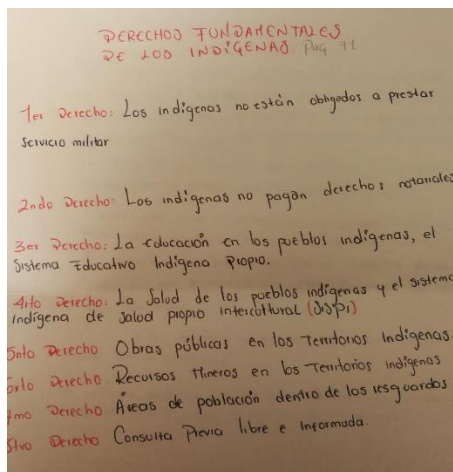 DERECHOS FUNDAMENTALES
DE LOS INDÍGENAS. Pag 41
1er Derecho: Los indígenas no están obligados a prestar
Servicio militar
2ndo Derecho: Los indígenas no pagan derechos notariales
3er Derecho: La Educación en los pueblos indígenas, el
Sistema Educativo Indígena Propio.
4rto Derecho: La Salud de los pueblos indígenas y el sistema
Indígena de Salud propio intercultural (SISPI)
5nto Derecho Obras públicas en los Territorios Indígenas.
6xto Derecho. Recursos Mineros en los Territorios indígenas
7mo Derecho Áreas de población dentro de los resguardos
8tvo Derecho Consulta Previa libre e Informada.